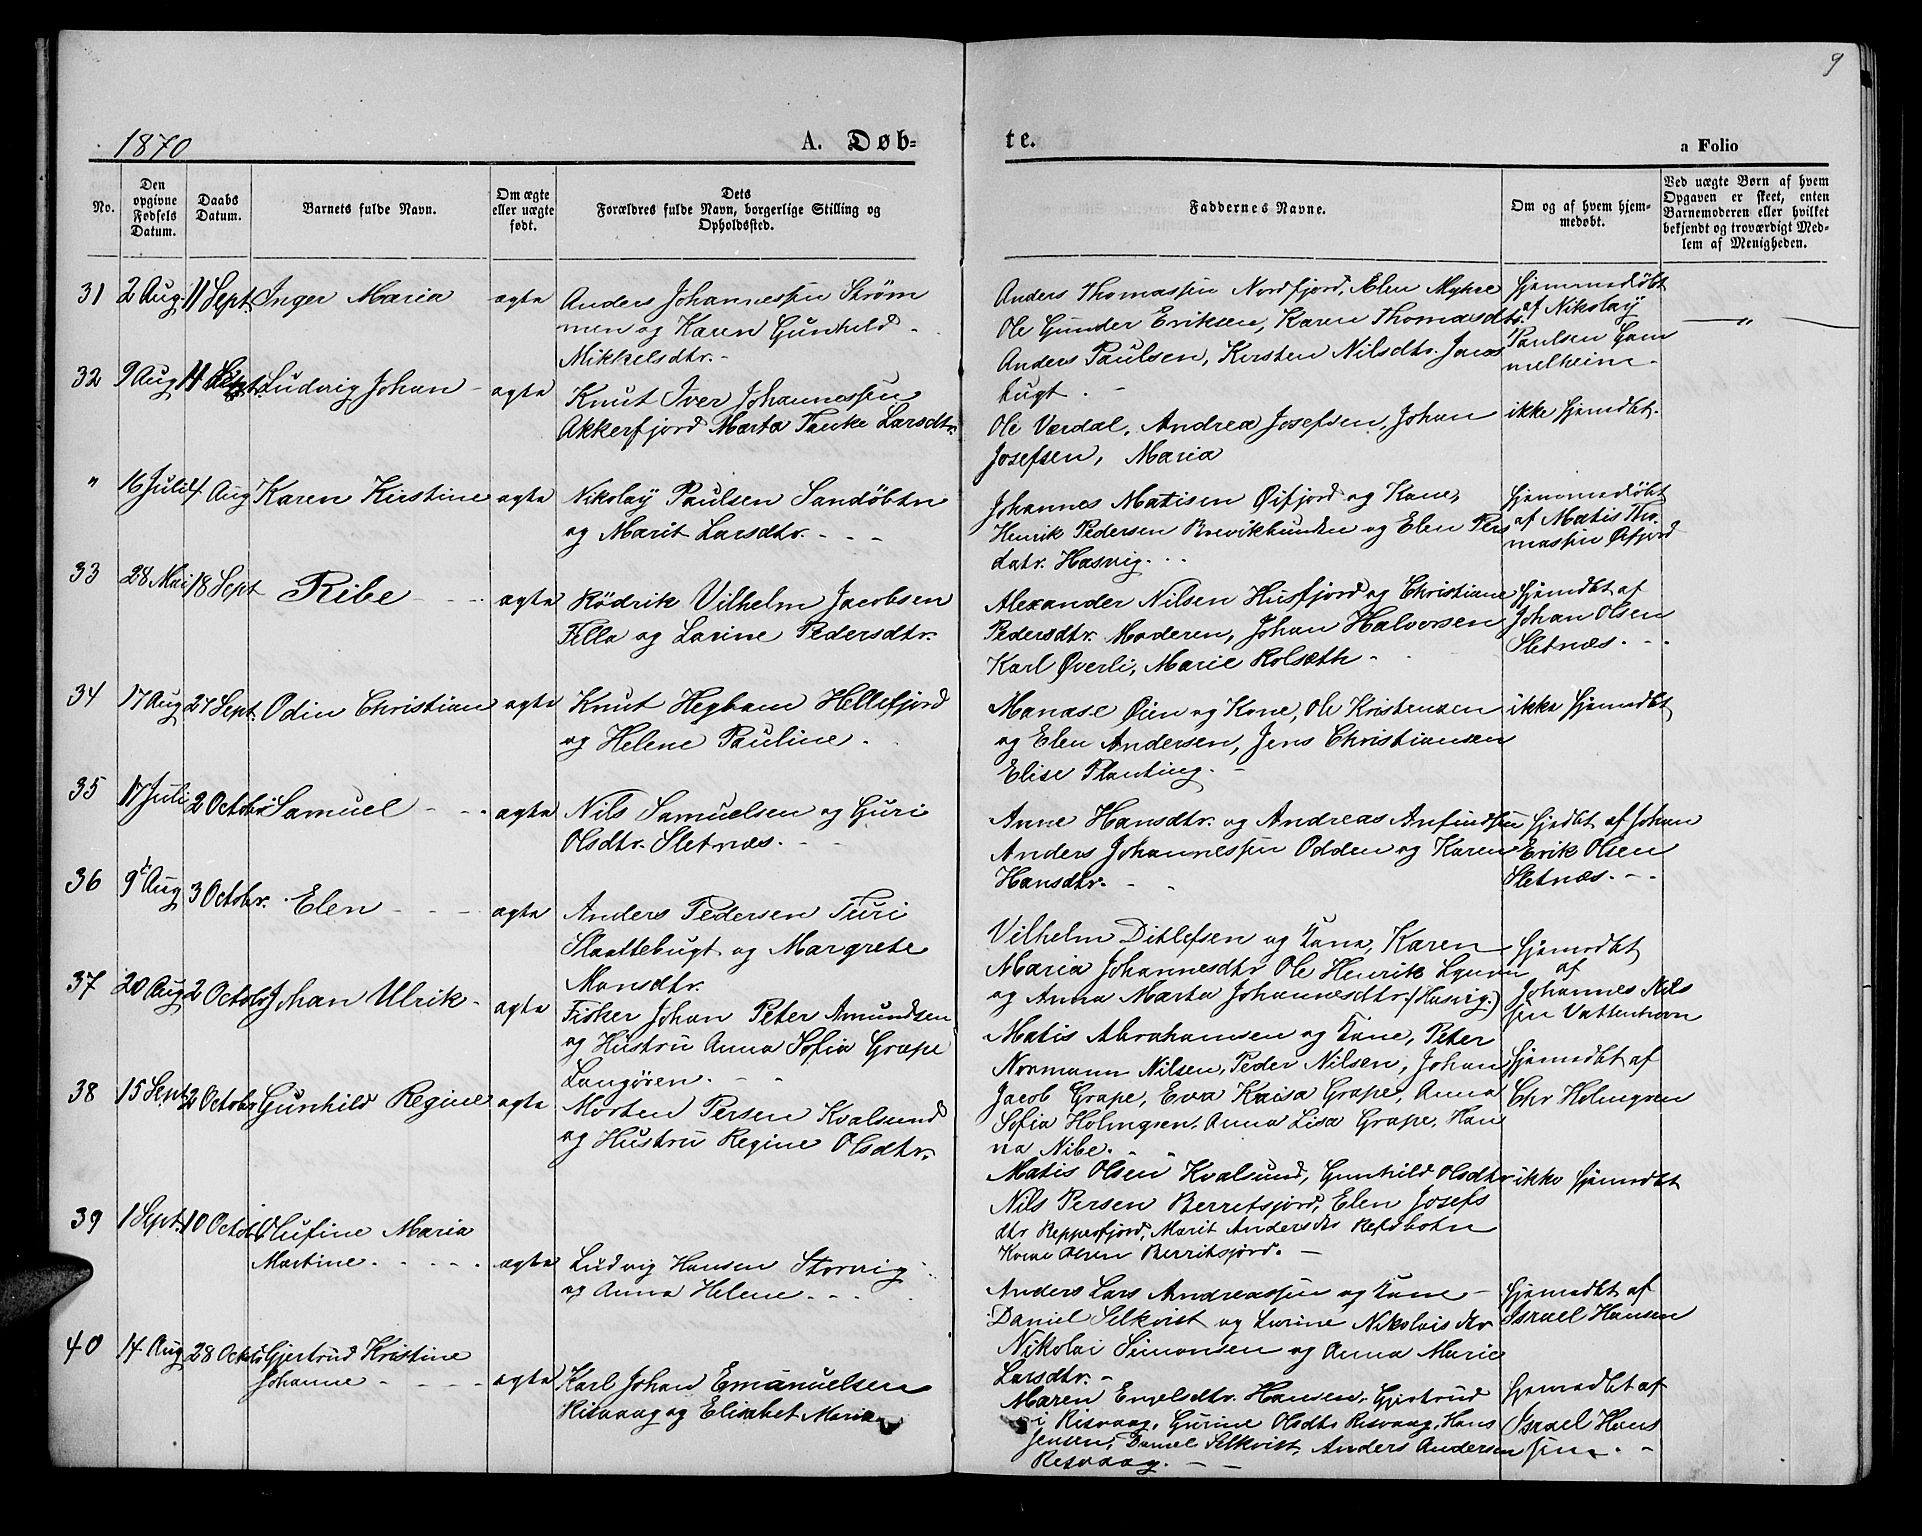 9
1870
A. Døb-
te.
a Folio
No.
Den opgivne Fødsels Datum.
Daabs Datum.
Barnets fulde Navn.
Om ægte eller uægte født.
Dets Forældres fulde Navn, borgerlige Stilling og Opholdssted.
Faddernes Navne.
Om og af hvem hjemmedøbt.
Ved uægte Børn af hvem Opgaven er skeet, enten Barnemoderen eller hvilket bekjendt og troværdigt Medlem af Menigheden.
31 2 Aug. 11 Sept. Inger Maria ægte
Anders Johannessen Strøm
men og Karen Gunhild
Mikkelsdtr.
Anders Thomassen Nordfjord, Elen Myhre
Ole Gunder Eriksen, Karen Thomasdtr.
Anders Paulsen, Kirsten Nilsdtr. Jacos
bugt
Hjemmedøbt
af Nikolaÿ
Paulsen Gam
melheim.
"
32 9 Aug 11 Sept. Ludvig Johan ægte
Knut Iver Johannessen
Akkerfjord Marta Tanke Larsdtr.
Ole Værdal, Andrea Josefsen, Johan
Josefsen, Maria
ikke hjemdbt.
" 16 Juli 4 Aug Karen Kirstine ægte
Nikolaÿ Paulsen Sandøbtn
og Marit Larsdtr.
Johannes Matisen Øifjord og Kone,
Henrik Pedersen Brevikbunden og Elen Pers
datr. Hasvig.
hjemmedøbt
af Matis Tho
massen Øifjord
33 28 Mai 18 Sept Ribe ægte
Rödrik Vilhelm Jacobsen
Fella og Larine Pedersdtr.
Alexander Nilsen Husfjord og Christiane
Pedersdtr. Moderen, Johan Halvorsen
Karl Øverli, Marie Rolsæth
Hjemdbt af
Johan Olsen
Sletnæs.
34 17 Aug 27 Sept. Odin Christian ægte
Knut Hegbom Hellefjord
og Helene Pauline.
Manase Øien og Kone, Ole Kristensen
og Elen Andersen, Jens Christiansen
Elise Planting.
ikke hjemdbt
35 17 Juli 2 Octobr Samuel ægte
Nils Samuelsen og Guri
Olsdtr. Sletnæs.
Anne Hansdtr. og Andreas Anfindsen
Anders Johannessen Odden og Karen
Hansdtr.
hjdbt af Johan
Erik Olsen
Sletnæs.
36 9de Aug 3 Octobr. Elen ægte
Anders Pedersen Turi
Slaattebugt og Margrete
Monsdtr.
Vilhelm Ditlefsen og Kone, Karen
Maria Johannesdtr Ole Henrik
og Anna Marta Johannesdtr. (Hasvig.)
hjemdbt
af
Johannes Nils
sen Vattenhovn
37 20 Aug 2 Octobr Johan Ulrik ægte
Fisker Johan Peter Amundsen
og Hustru Anna Sofia Grape
Langören.
Matis Abrahamsen og Kone, Peter
Normann Nilsen, Peder Nilsen, Johan
Jacob Grape, Eva Kaisa Grape, Anna
Sofia Holmgsen, Anna Lisa Grape, Han
na Nibe.
hjemdbt af
Chr Holmgren
38 15 Sept. 2 Octobr Gunhild Regine ægte
Morten Persen Kvalsund
og Hustru Regine Olsdtr.
Matis Olsen Kvalsund, Gunhild Olsdtr
Nils Persen Berretsjord, Elen Josefs
dtr Repperfjord, Marit Andersdtr
Olsen Berritsjord.
ikke hjemdbt
39 1 Sept. 10 Octobr Olufine Maria
Martine ægte
Ludvig Hansen Storvig
og Anna Helene
Anders Lars Andreassen og Kone
Daniel Selkvist og Larine Nikolaisdtr
Nikolai Simonsen og Anna Marie
Larsdtr.
hjemdbt af
Israel Hansen
40 14 Aug 28 Octobr Gjertrud Kristine
Johanne ægte
Karl Johan Emanuelsen
Risvaag og Elisabet Maria
Maren Engeldtr. Hansen, Gjertrud
i Risvaag, Gurine Olsdtr Risvaag, Hans
Jensen, Daniel Selkvist, Anders Andersen
Risvaag.
hjemdbt af
Israel Hans
sen